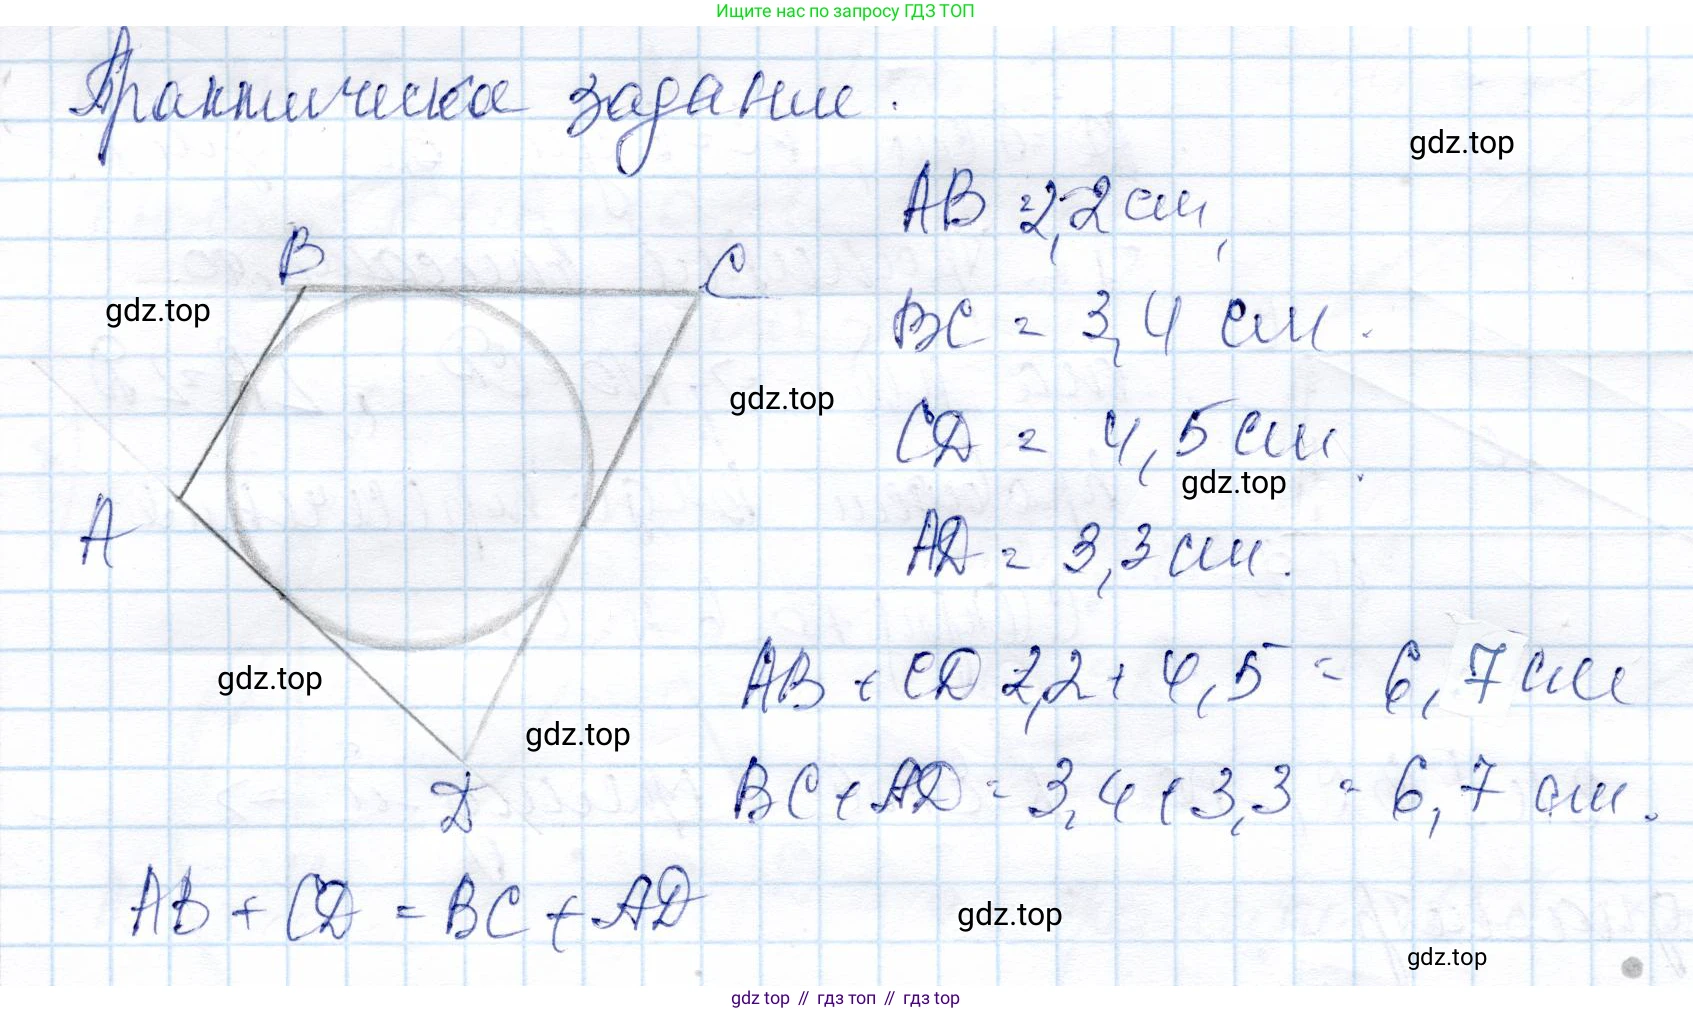 Ищите нас по запросу ГДЗ ТОП
Практическое задание.
gdz.top
AB = 2,2 см,
B
C
gdz.top
BC = 3,4 см.
gdz.top
CD = 4,5 см.
gdz.top
A
AD = 3,3 см.
gdz.top
AB + CD = 2,2 + 4,5 = 6,7 см
gdz.top
D
BC + AD = 3,4 + 3,3 = 6,7 см.
AB + CD = BC + AD
gdz.top
gdz.top
gdz top // гдз топ // гдз top